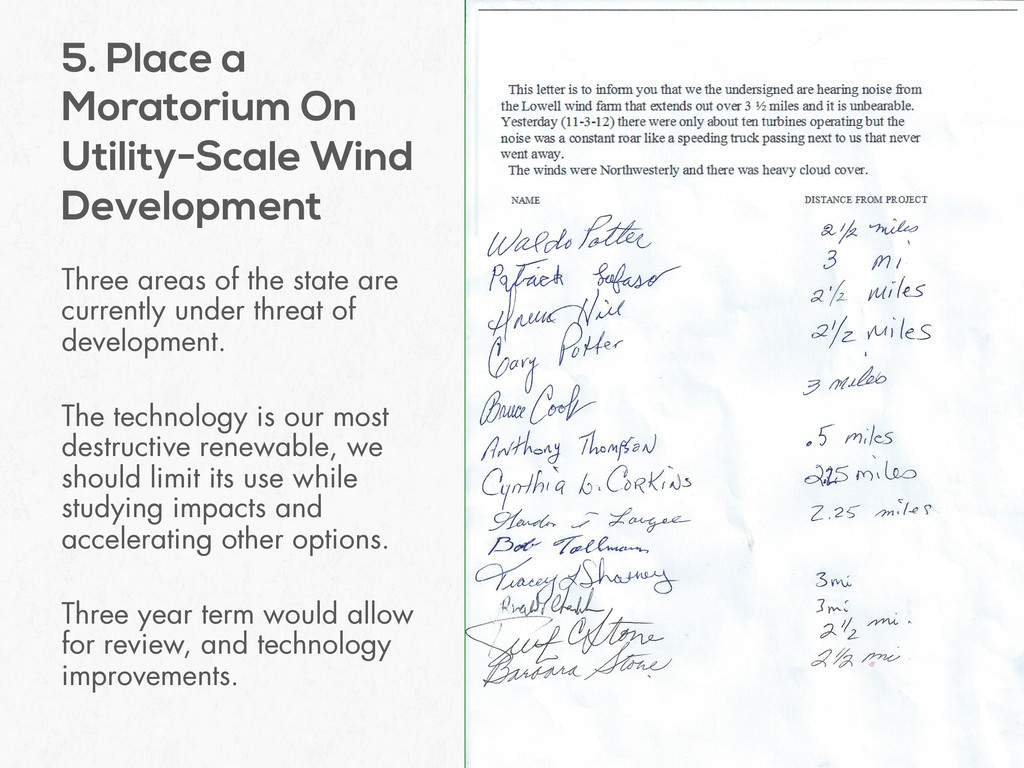 5. Place a
Moratorium On
Utility-Scale Wind
Development
Three areas of the state are
currently under threat of
development.
The technology is our most
destructive renewable, we
should limit its use while
studying impacts and
accelerating other options.
Three year term would allow
for review, and technology
improvements.
This letter is to inform you that we the undersigned are hearing noise from
the Lowell wind farm that extends out over 3 ½ miles and it is unbearable.
Yesterday (11-3-12) there were only about ten turbines operating but the
noise was a constant roar like a speeding truck passing next to us that never
went away.
The winds were Northwesterly and there was heavy cloud cover.
NAME DISTANCE FROM PROJECT
Waldo Potter 2 1/2 miles
Patrick 3 mi
Hill 2 1/2 miles
Gary Potter 2 1/2 miles
Bruce Cook 3 miles
Anthony Thompson .5 miles
Cynthia L. Corkins 2.25 miles
2.25 miles
Bob Tollmann
Tracey 3 mi
3 mi
Stone 2 1/2 mi.
Barbara Stone 2 1/2 mi.